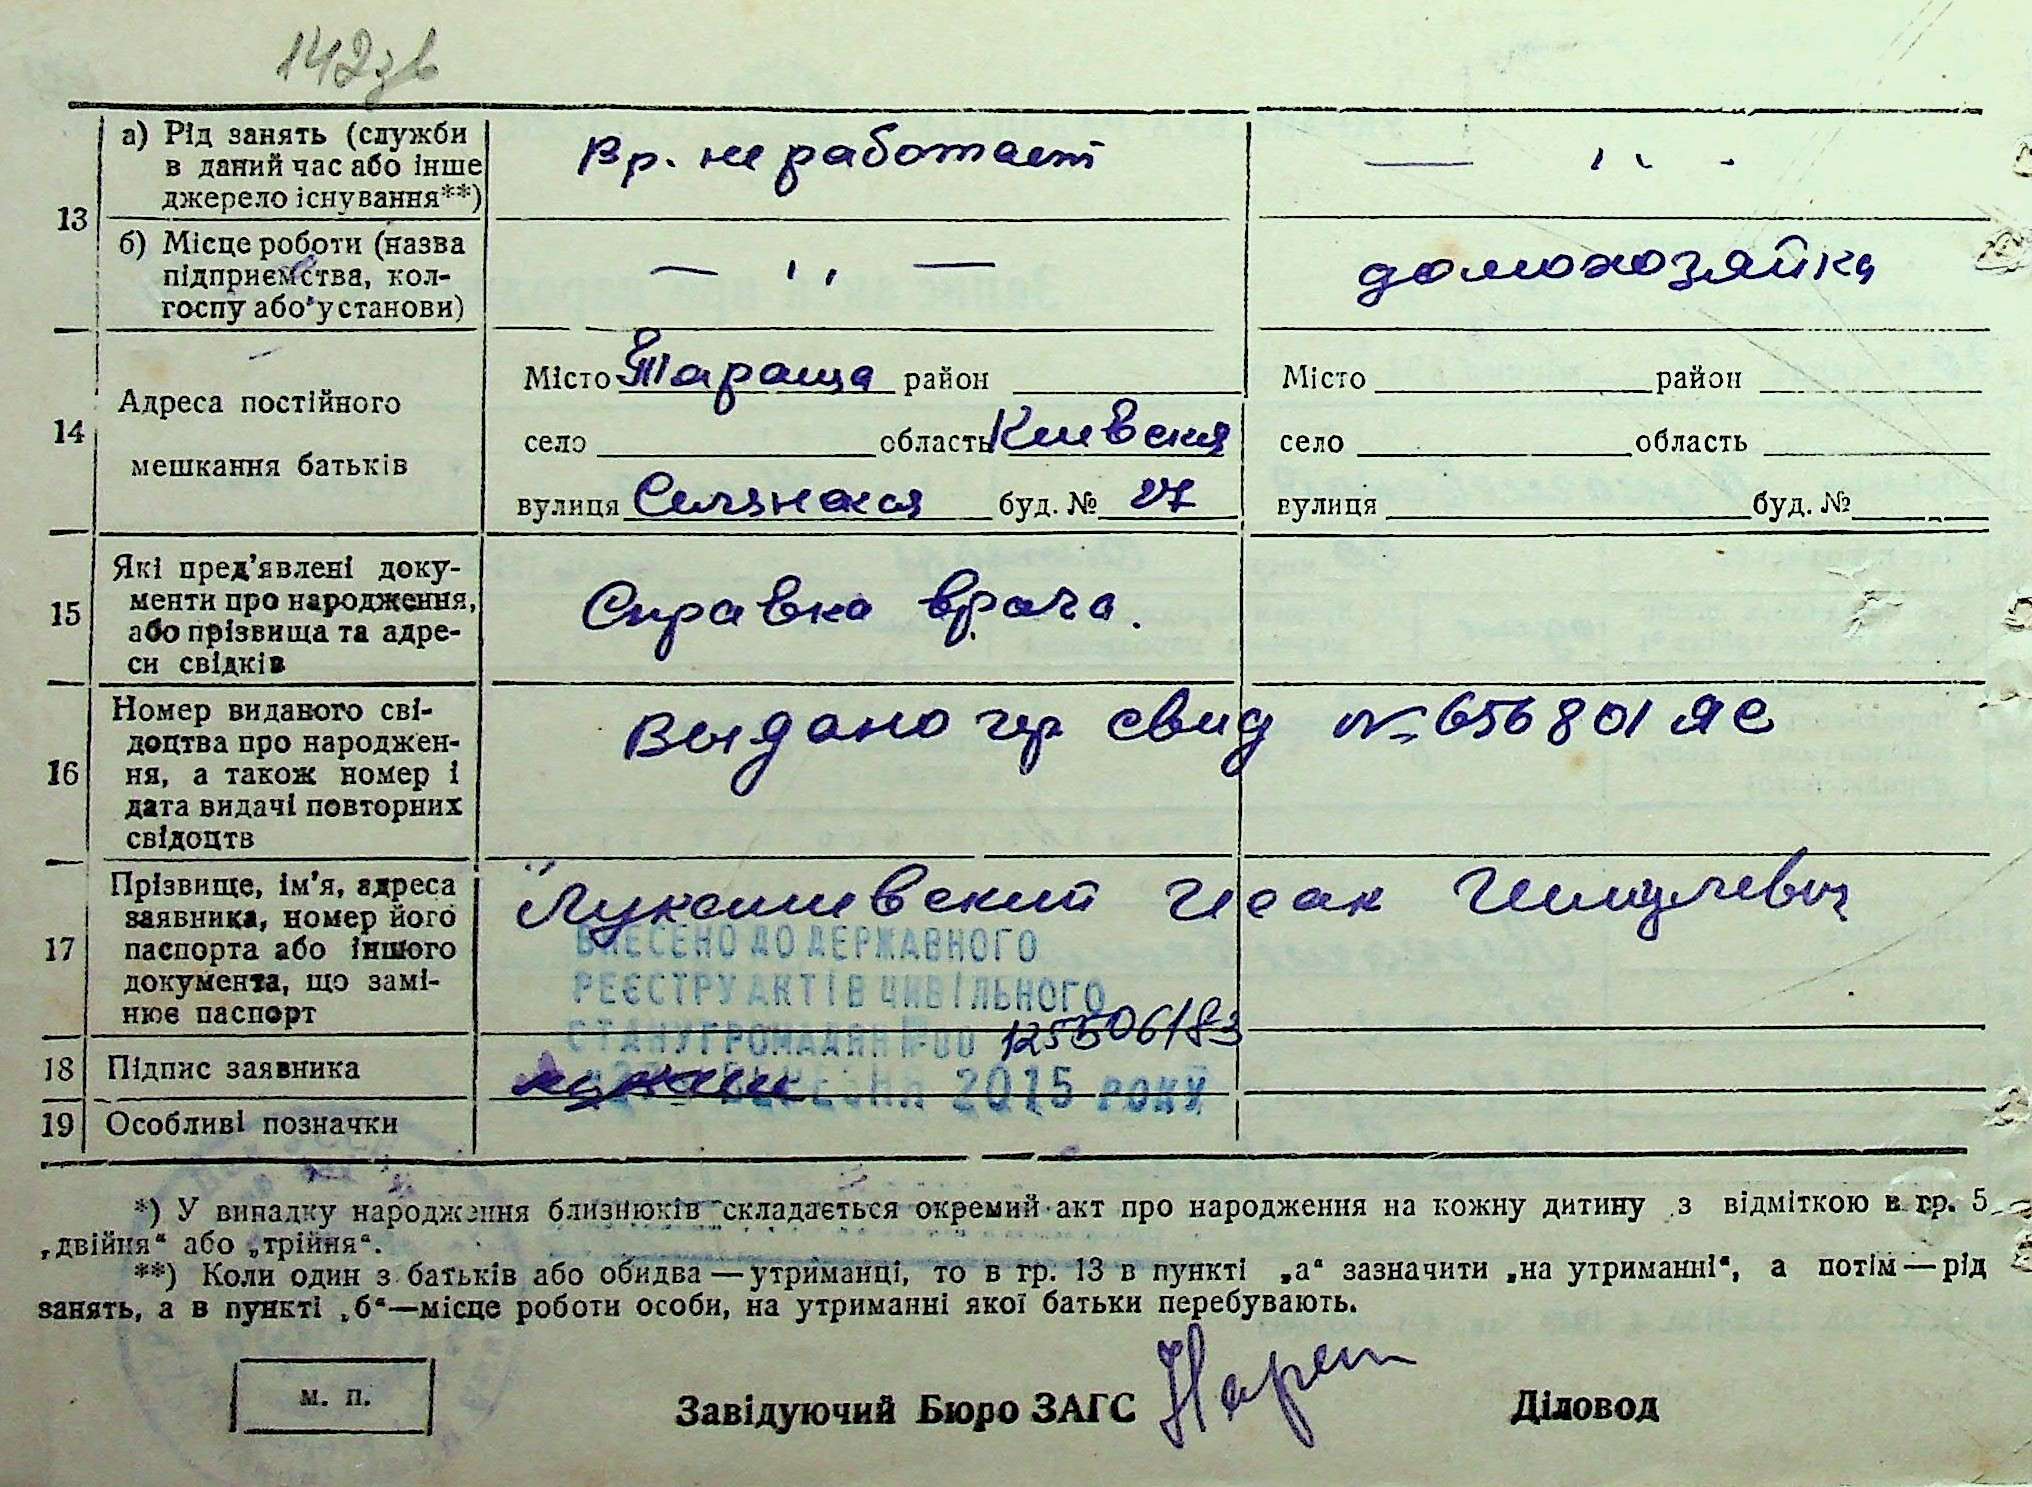 142зв
13
а) Рід занять (служби
в даний час або інше
джерело існування**)
Вр. не работает
— ,, -
б) Місце роботи (назва
підприємства, кол-
госпу або установи)
— ,, —
домохозяйка
14
Адреса постійного
мешкання батьків
Місто Тараща район
село область Киевская
вулиця буд. № 27
Місто район
село область
вулиця буд. №
15
Які пред'явлені доку-
менти про народження,
або прізвища та адре-
си свідків
Справка врача.
16
Номер виданого сві-
доцтва про народжен-
ня, а також номер і
дата видачі повторних
свідоцтв
Выдано гр свид № 656801 ЯС
17
Прізвище, ім'я, адреса
заявника, номер його
паспорта або іншого
документа, що замі-
нює паспорт
Лукашевский Исак
ВНЕСЕНО ДО ДЕРЖАВНОГО
РЕЄСТРУ АКТІВ ЦИВІЛЬНОГО
СТАНУ ГРОМАДЯН № 00 125506183
БЕРЕЗНЯ 2015 РОКУ
18
Підпис заявника
19
Особливі позначки
*) У випадку народження близнюків складається окремий акт про народження на кожну дитину з відміткою в гр. 5
„двійня“ або „трійня“.
**) Коли один з батьків або обидва — утриманці, то в гр. 13 в пункті „а“ зазначити „на утриманні“, а потім — рід
занять, а в пункті „б“ — місце роботи особи, на утриманні якої батьки перебувають.
м. п.
Завідуючий Бюро ЗАГС
Діловод